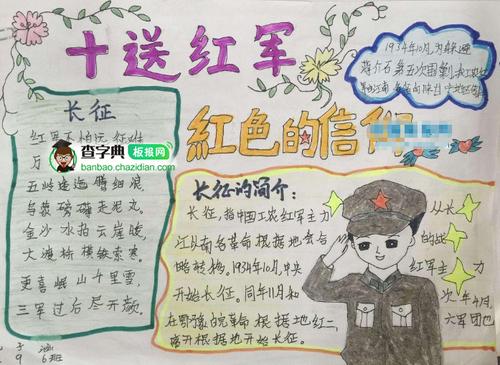 十送红军
1934年10月,为躲避
蒋介石第五次围剿
红色的信仰
长征
红军不怕远征难
万
五岭逶迤腾细浪,
乌蒙磅礴走泥丸。
金沙水拍云崖暖,
大渡桥横铁索寒。
更喜岷山千里雪,
三军过后尽开颜。
查字典 板报网
banbao.chazidian.com
长征的简介:
长征,指中国工农红军主力 从长
江以南各革命根据地会合 的战
略转移。1934年10月,中央 红军主力
开始长征。同年11月和 次年4月
在鄂豫皖革命根据地红二 六军团也
离开根据地开始长征。
6班